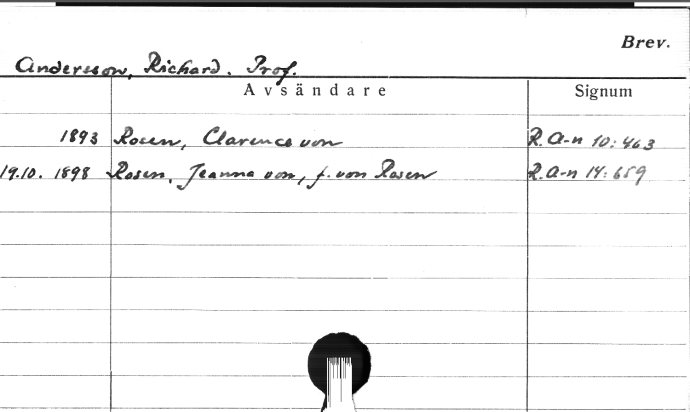 Brev.
Andersson, Richard. Prof.
Avsändare Signum
1893 Rosen, Clarence von R. A-n 10:463
19.10. 1898 Rosen, Jeanna von, f. von Rosen R. A-n 14:659